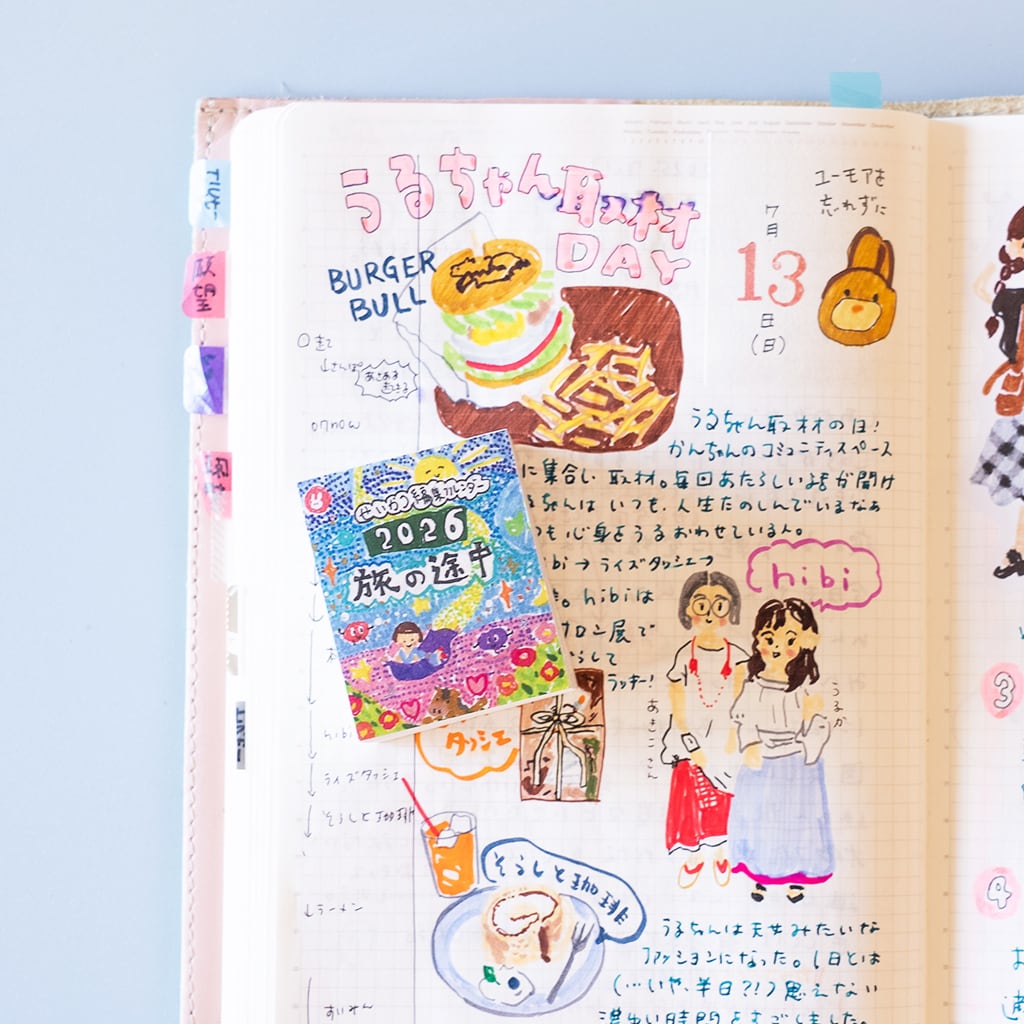 うるちゃん取材
DAY
BURGER
BULL
ユーモアを
忘れずに
7
月
13
日
(日)
願望
起て
↓さんぽ
now
うるちゃん取材の日!
かんちゃんのコミュニティスペース
に集合し取材。毎回あたらしい話が聞け
るちゃんはいつも、人生たのしんでいまなぁ
つも心身をうるおわせている人。
hibi→ライズタッシェ→
。hibiは
サロン展で
して
ラッキー!
hibi
2026
旅の途中
あきこさん
うるか
タッシェ
hibi
ライズタッシェ
そうしと珈琲
そうしと珈琲
↓ラーメン
すいみん
うるちゃんは天女みたいな
ファッションになった。1日とは
(…いや、半日?!)思えない
濃出い時間をすごしました。
3
4